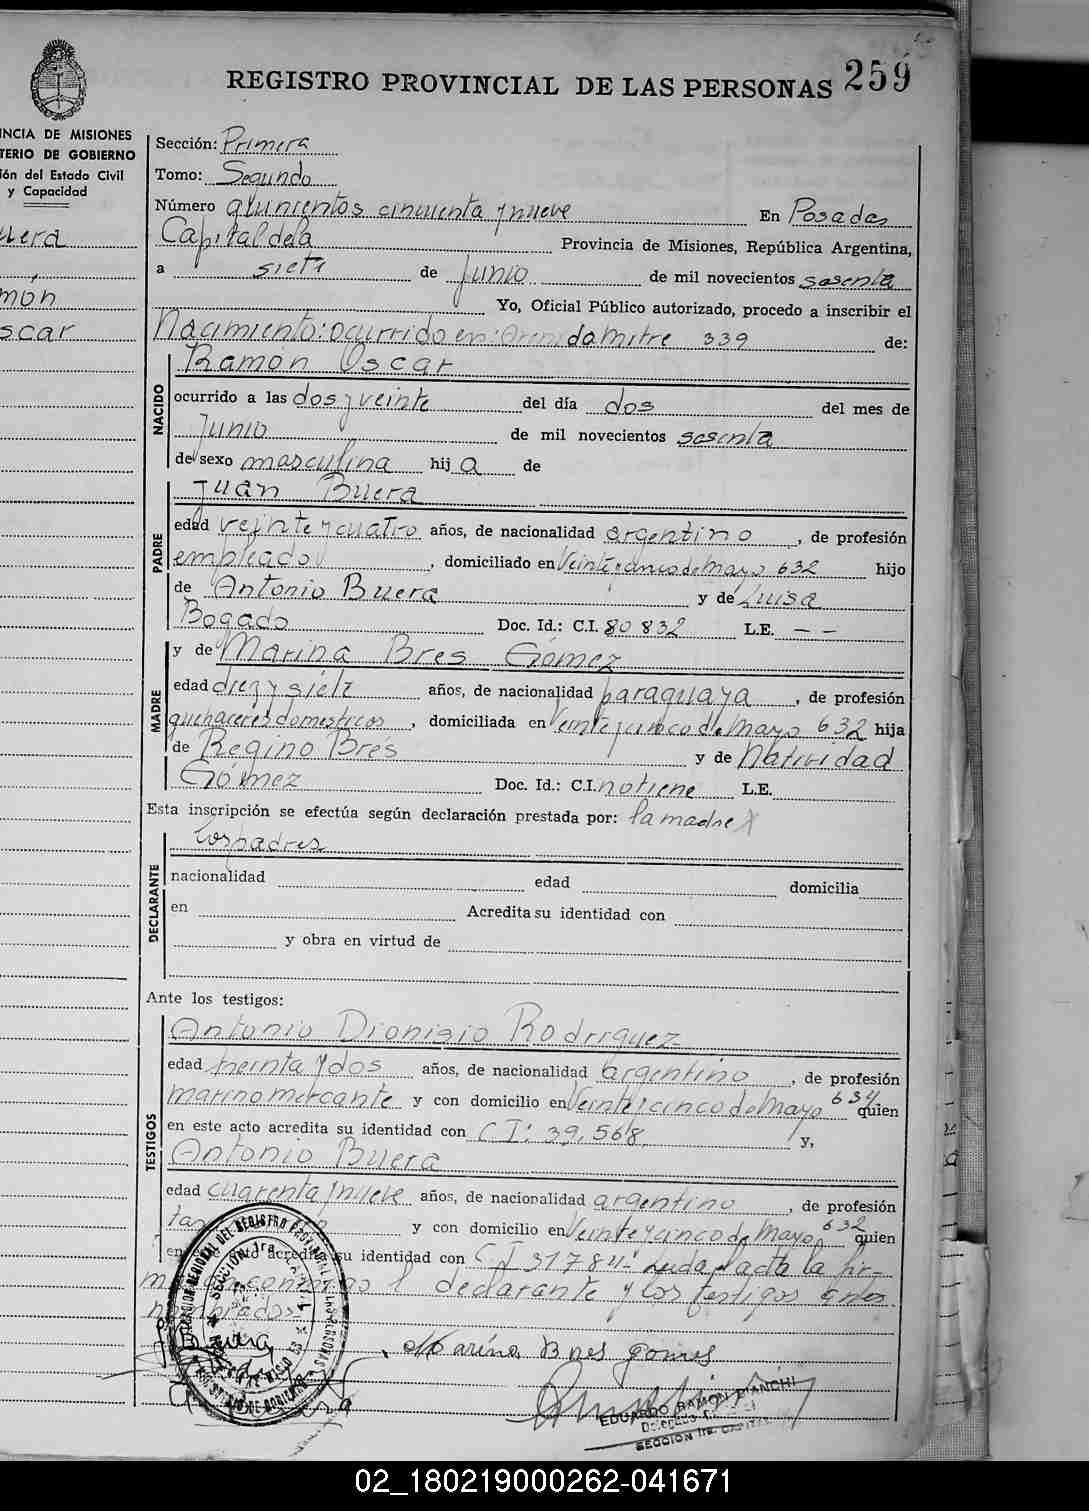 REGISTRO PROVINCIAL DE LAS PERSONAS 259
INCIA DE MISIONES
TERIO DE GOBIERNO
ión del Estado Civil
y Capacidad
món
scar
Sección: Primera
Tomo: Segundo
Número quinientos cincuenta y nueve En Posadas
Capital de la Provincia de Misiones, República Argentina,
a siete de Junio de mil novecientos sesenta
Yo, Oficial Público autorizado, procedo a inscribir el
Nacimiento: ocurrido en: Avenida Mitre 339 de:
NACIDO
Ramón Oscar
ocurrido a las dos y veinte del día dos del mes de
Junio de mil novecientos sesenta
de sexo masculina hij a de
PADRE
Juan Buera
edad veinte y cuatro años, de nacionalidad argentino, de profesión
empleado, domiciliado en Veinte y cinco de Mayo 632 hijo
de Antonio Buera y de Luisa
Bogado Doc. Id.: C.I. 80832 L.E. – –
MADRE
y de Marina Bres Gómez
edad diez y siete años, de nacionalidad paraguaya, de profesión
quehaceres domesticos, domiciliada en Veinte y cinco de Mayo 632 hija
de Regino Bres y de Natividad
Gómez Doc. Id.: C.I. no tiene L.E.
Esta inscripción se efectúa según declaración prestada por: la madre X
DECLARANTE
los padres
nacionalidad edad domicilia
en Acredita su identidad con
y obra en virtud de
Ante los testigos:
TESTIGOS
Antonio Dionisio Rodriguez
edad treinta y dos años, de nacionalidad argentino, de profesión
marino mercante y con domicilio en Veinte y cinco de Mayo 634 quien
en este acto acredita su identidad con C I: 39.568 y,
Antonio Buera
edad cuarenta y nueve años, de nacionalidad argentino, de profesión
y con domicilio en Veinte y cinco de Mayo 632 quien
en este acto acredita su identidad con C I 31784: Leida el acta la fir-
man conmigo el declarante y los testigos antes
nombrados
Marina Bres Gomes
EDUARDO RAMON BIANCHI
SECCION 1ra. CAPITAL
02_180219000262-041671